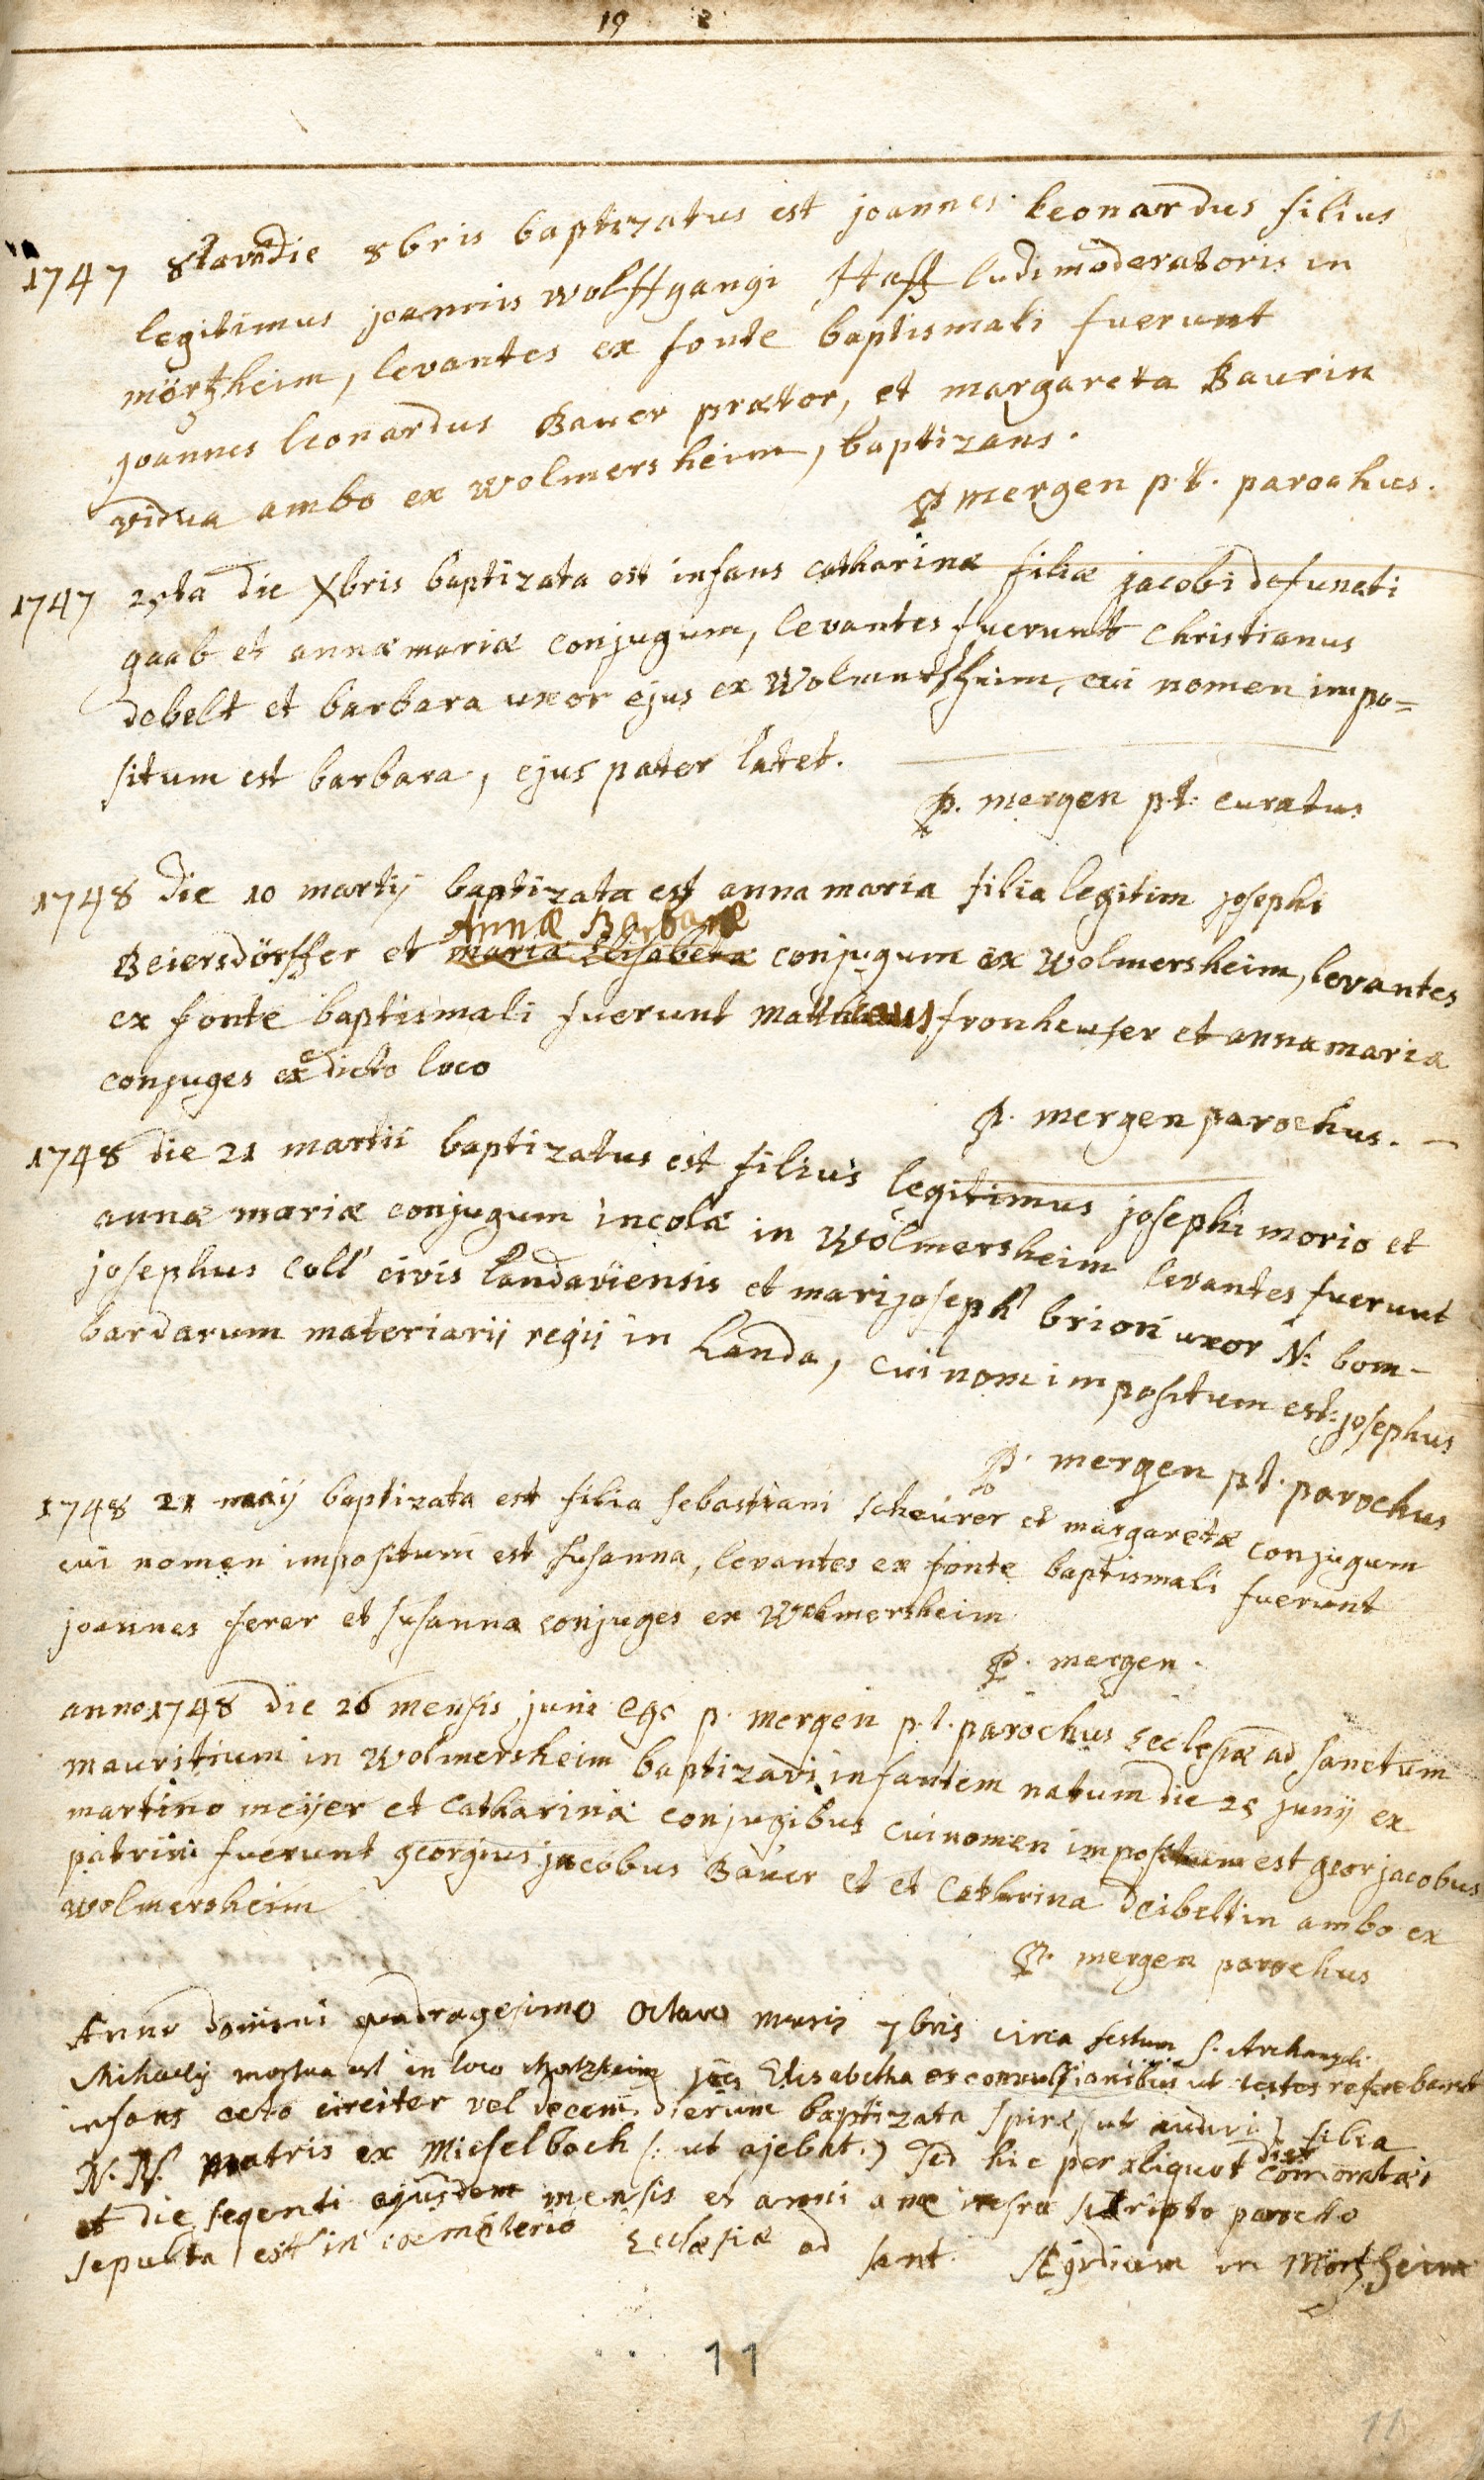 19 e
1747 8tava die 8bris baptizatus est joannes leonardus filius
legitimus joannis wolffgangi Hass ludimoderatoris in
mörtzheim, levantes ex fonte baptismali fuerunt
joannes leonardus Bauer prætor, et margareta Baurin
vidua ambo ex wolmersheim, baptizans.
P mergen p.t. parochus.
1747 25ta die Xbris baptizata est infans catharinæ filiæ jacobi defuncti
gaab et annæ mariæ conjugum, levantes fuerunt christianus
debelt et barbara uxor ejus ex Wolmersheim, cui nomen impo=
situm est barbara, ejus pater latet.
P. mergen p.t. curatus
1748 die 10 martij baptizata est anna maria filia legitim josephi
Annæ Barbaræ
Beiersdörffer et mariæ Elisabetæ conjugum ex wolmersheim, levantes
ex fonte baptismali fuerunt Matthæus fronheuser et anna maria
conjuges ex dicto loco
P. mergen parochus.
1748 die 21 martii baptizatus est filius legitimus josephi morio et
annæ mariæ conjugum incolæ in Wolmersheim levantes fuerunt
josephus coll civis landaviensis et mari joseph brion uxor N: bom-
bardarum materiarij regij in Landa, cui nom impositum est: josephus
P. mergen p.t. parochus
1748 21 maij baptizata est filia sebastiani scheurer et margaretæ conjugum
cui nomen impositum est susanna, levantes ex fonte baptismali fuerunt
joannes ferer et susanna conjuges ex Wolmersheim
P. mergen.
anno 1748 die 26 mensis juni ego p. mergen p.t. parochus ecclesiæ ad sanctum
mauritium in Wolmersheim baptizavi infantem natum die 25 junij ex
martino meijer et catharina conjugibus cui nomen impositum est geor jacobus
patrini fuerunt georgius jacobus Bauer et et Cathrina deibeltin ambo ex
wolmersheim
P. mergen parochus
Anno domini quadragesimo octavo mensis 7bris circa festum S. Archangeli
Michaelis mortua est in loco Mortzheim Elisabetha ex convulsionibus ut testes referebant
infans octo circiter vel decem dierum baptizata spiræ (ut audivi) filia
N. N. matris ex Mieselbach (: ut ajebat.) sed hic per aliquot dies commoratæ
et die seqenti ejusdem mensis et anni a me infra scripto parocho
sepulta est in cœmeterio Ecclæsiæ ad sant. Ægidium in Mörtzheim
11